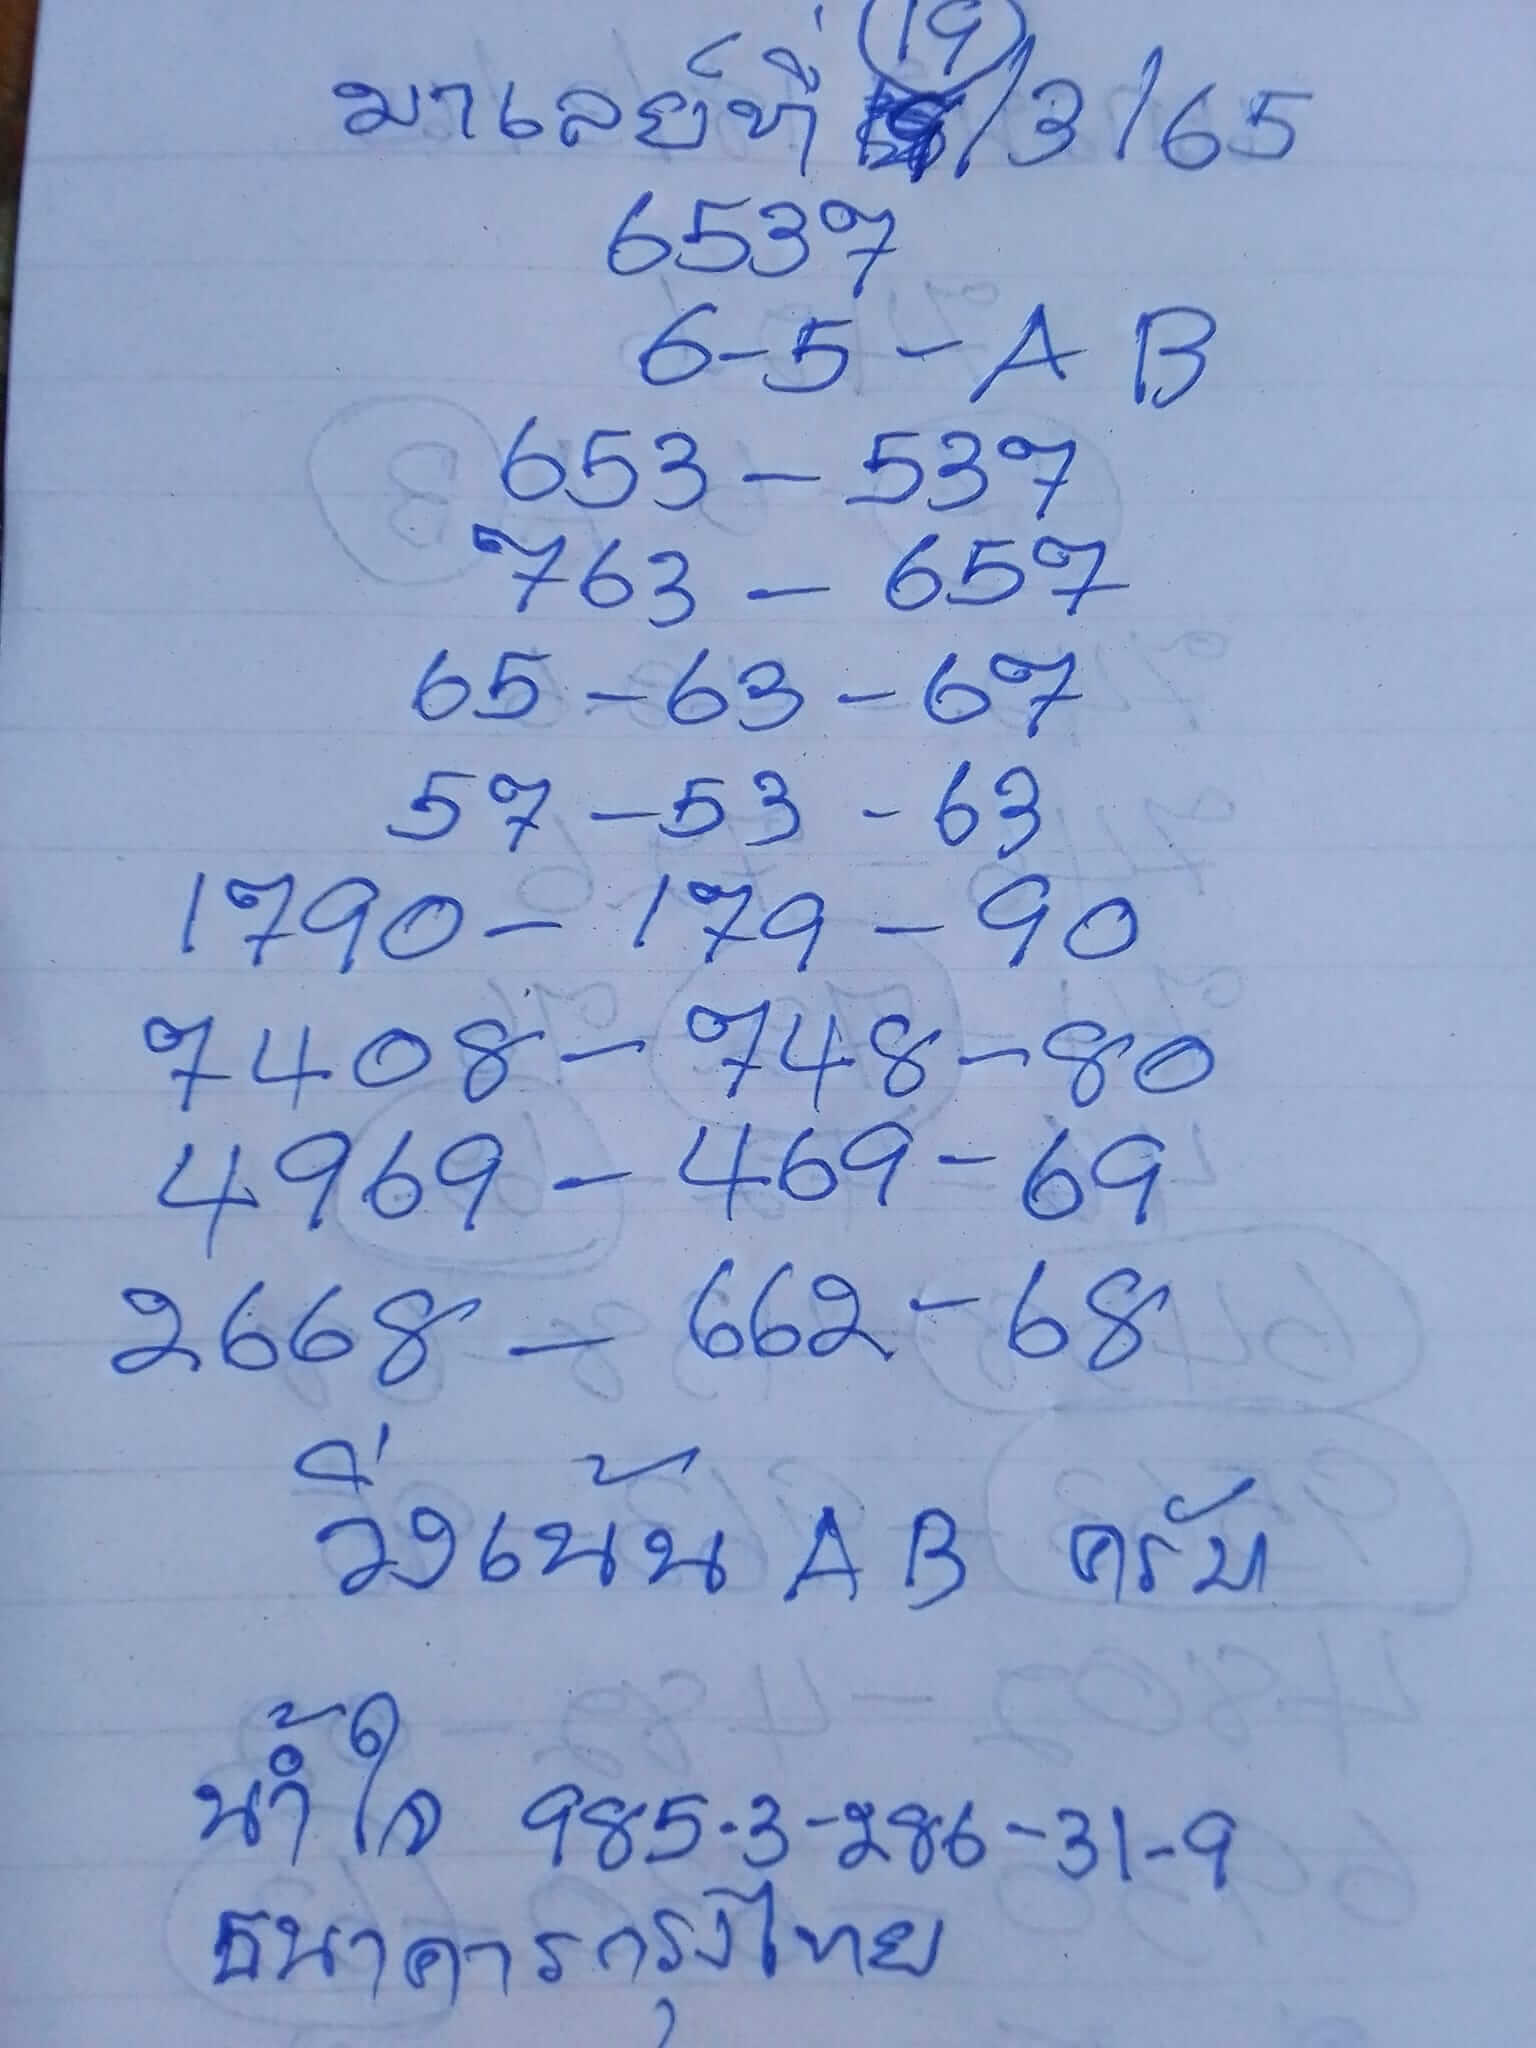 มาเลย์ที่ 19/3/65
6537
6-5-A B
653-537
763-657
65-63-67
57-53-63
1790-179-90
7408-748-80
4969-469-69
2668-662-68
วิ่งเน้น A B ครับ
น้ำใจ 985-3-286-31-9
ธนาคารกรุงไทย